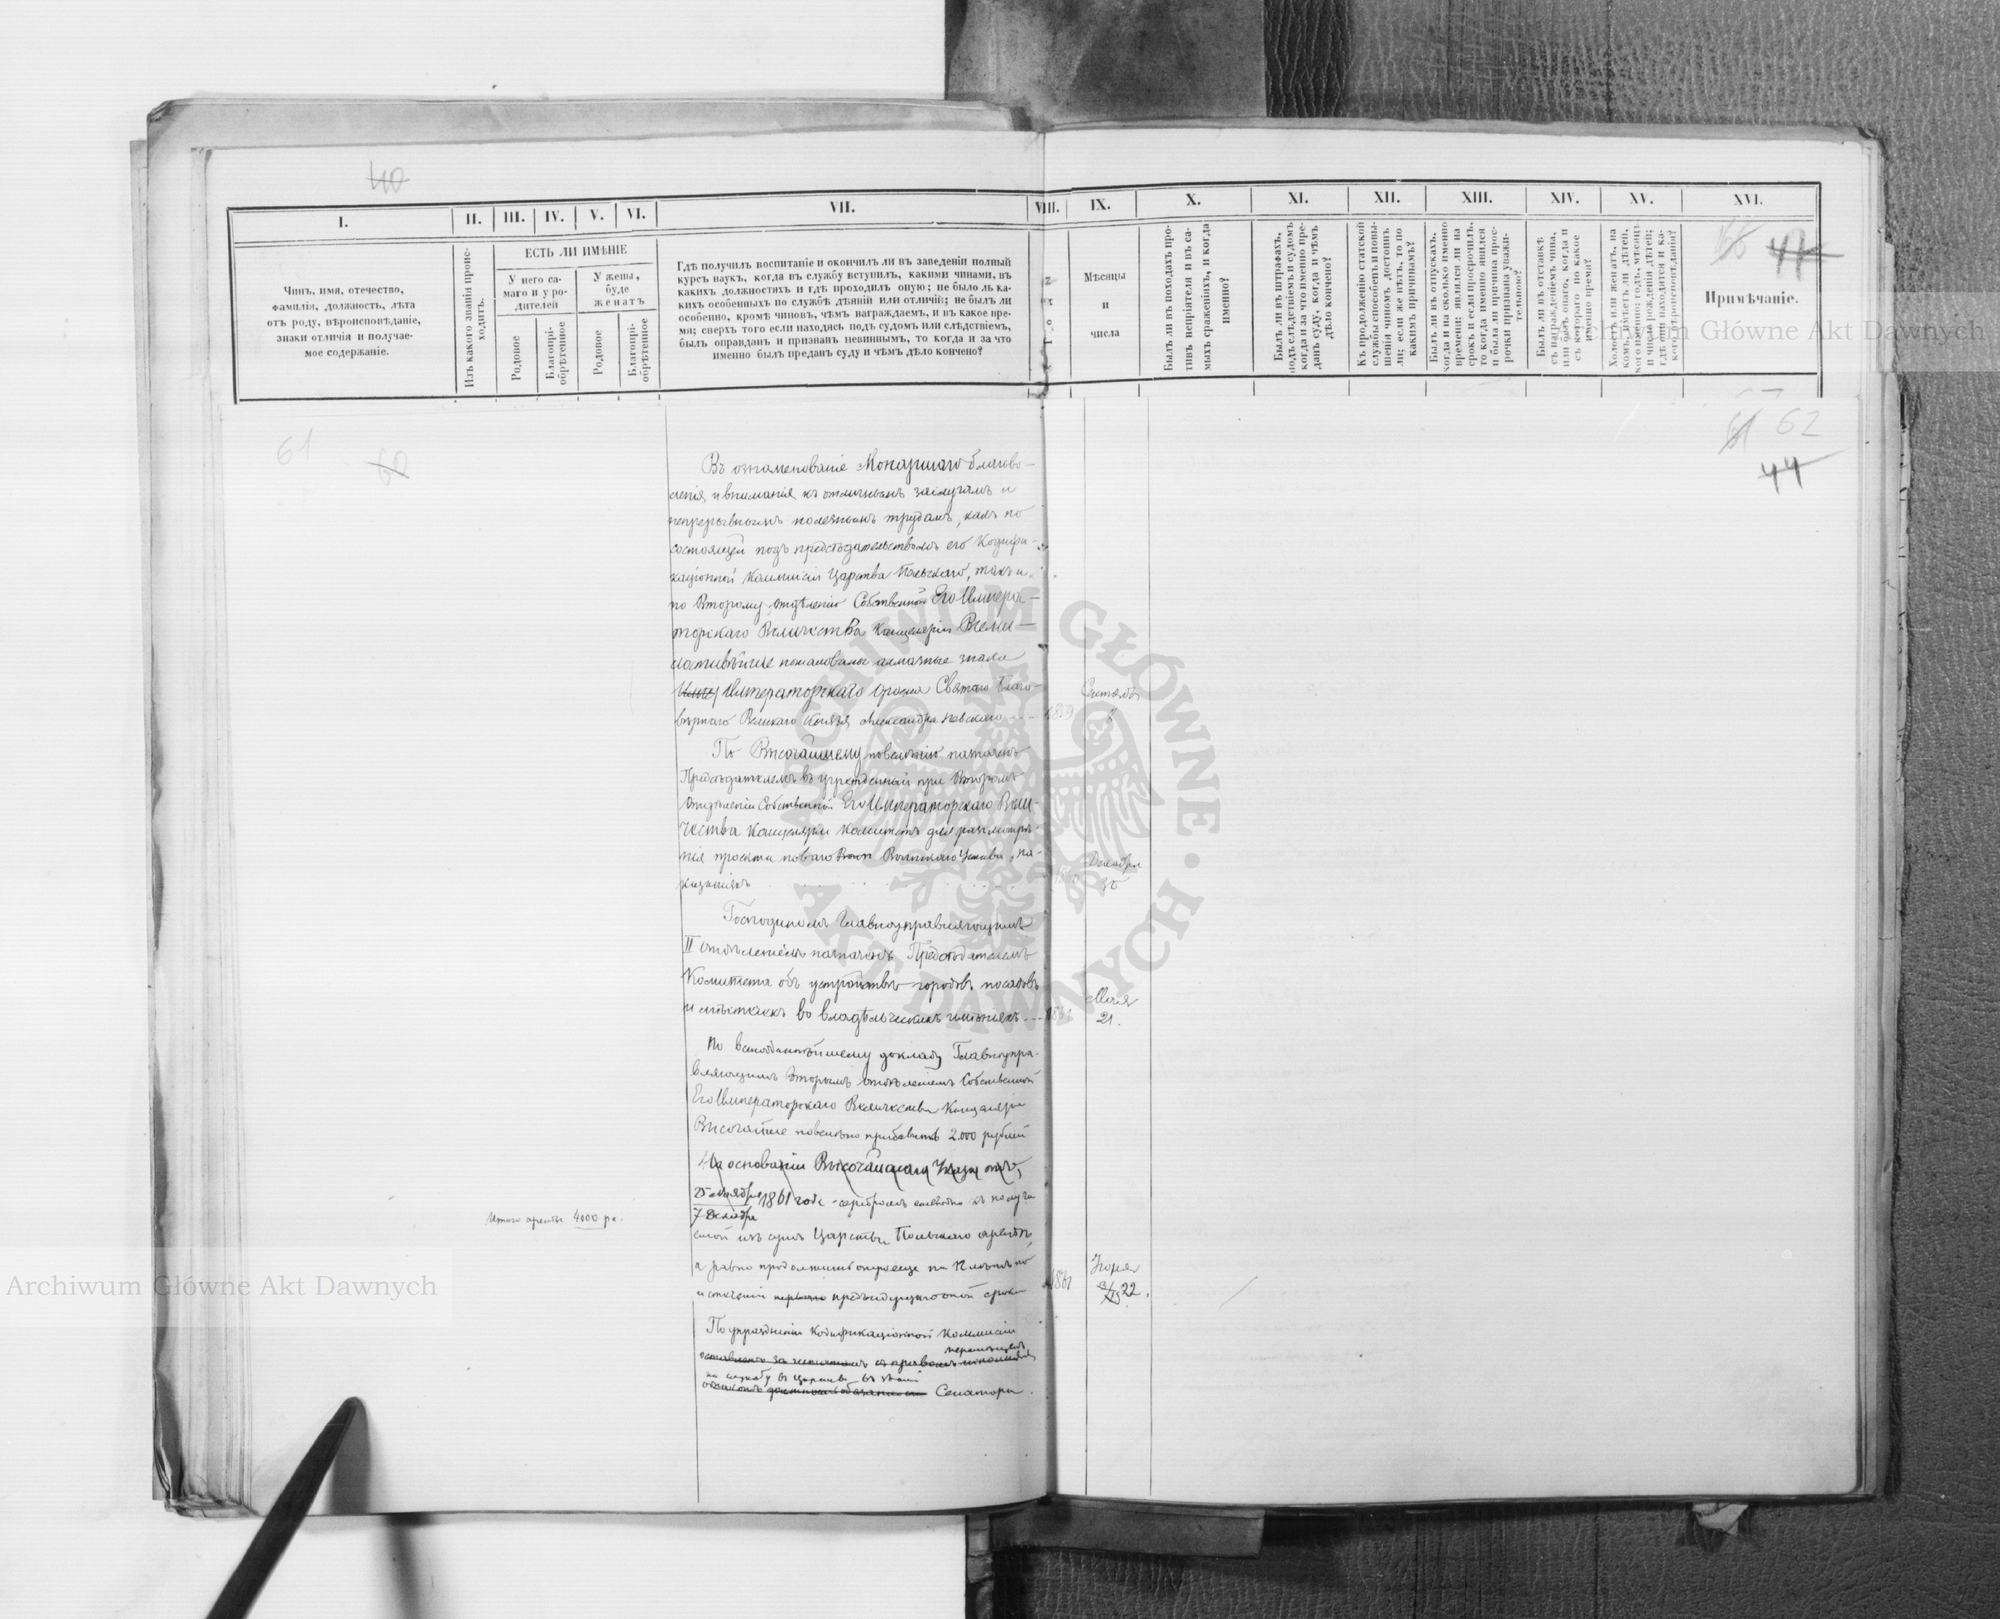 40
I.
II.
III.
IV.
V.
VI.
VII.
VIII.
IX.
X.
XI.
XII.
XIII.
XIV.
XV.
XVI.
Чинъ, имя, отечество,
фамилія, должность, лѣта
отъ роду, вѣроисповѣданіе,
знаки отличія и получае-
мое содержаніе.
Изъ какого званія проис-
ходитъ.
ЕСТЬ ЛИ ИМѢНІЕ
У него са-
маго и у ро-
дителей
У жены,
буде
женатъ
Родовое
Благопрі-
обрѣтенное
Родовое
Благопрі-
обрѣтенное
Гдѣ получилъ воспитаніе и окончилъ ли въ заведеніи полный
курсъ наукъ, когда въ службу вступилъ, какими чинами, въ
какихъ должностяхъ и гдѣ проходилъ оную; не было ль ка-
кихъ особенныхъ по службѣ дѣяній или отличій; не былъ ли
особенно, кромѣ чиновъ, чѣмъ награждаемъ, и въ какое вре-
мя; сверхъ того если находясь подъ судомъ или слѣдствіемъ,
былъ оправданъ и признанъ невиннымъ, то когда и за что
именно былъ преданъ суду и чѣмъ дѣло кончено?
Мѣсяцы
и
числа
Былъ ли въ походахъ про-
тивъ непріятеля и въ са-
мыхъ сраженіяхъ, и когда
именно?
Былъ ли въ штрафахъ,
подъ слѣдствіемъ и судомъ,
когда и за что именно пре-
данъ суду, когда и чѣмъ
дѣло кончено?
Къ продолженію статской
службы способенъ и повы-
шенія чиномъ достоинъ
ли; если же нѣтъ, то по
какимъ причинамъ?
Былъ ли въ отпускахъ,
когда и на сколько именно
времени; являлся ли на
срокъ и если просрочилъ,
то когда именно явился
и была ли причина прос-
рочки признана уважи-
тельною?
Былъ ли въ отставкѣ
съ награжденіемъ чина,
или безъ онаго, когда и
съ котораго по какое
именно время?
Холостъ или женатъ, на
комъ, имѣетъ ли дѣтей,
кого именно; годъ, мѣсяцъ
и число рожденія дѣтей;
гдѣ они находятся и ка-
кого вѣроисповѣданія?
Примѣчаніе.
61 60
62
44
Въ ознаменованіе Монаршаго благово-
ленія и вниманія къ отличнымъ заслугамъ и
непрерывнымъ полезнымъ трудамъ, какъ по
состоящей подъ предсѣдательствомъ его Кодифи-
каціонной Коммисіи Царства Польскаго, такъ и
по Второму отдѣленію Собственной Его Импера-
торскаго Величества Канцеляріи Всеми-
лостивѣйше пожалованы алмазные знаки
Императорскаго ордена Святаго Благо-
вѣрнаго Великаго Князя Александра Невскаго
1859
Сентября
8
По Высочайшему повелѣнію назначенъ
Предсѣдателемъ въ учрежденный при Второмъ
Отдѣленіи Собственной Его Императорскаго Вели-
чества Канцеляріи Комитетъ для разсмотрѣ-
нія проекта новаго Воинскаго Устава о на-
казаніяхъ
Декабря
30
Господиномъ Главноуправляющимъ
II отдѣленіемъ назначенъ Предсѣдателемъ
Комитета объ устройствѣ городовъ посадовъ
и мѣстечекъ во владѣльческихъ имѣніяхъ
1861
Мая
21.
По всеподданнѣйшему докладу Главноупра-
вляющимъ Вторымъ отдѣленіемъ Собственной
Его Императорскаго Величества Канцеляріи
Высочайше повелѣно прибавить 2.000 рублей
На основаніи Высочайшаго Указа отъ
25 Ноября 1861 года серебромъ ежегодно къ получа
7 Декабря
емой изъ суммъ Царства Польскаго арендѣ,
а равно продолжить оную еще на 12 лѣтъ по
истеченіи предъидущаго срока
Итого аренды 4000 рс.
1861
22.
По упраздненіи Кодификаціонной Коммисіи
перемѣщенъ
на службу въ Царство въ званіи
Сенатора.
Archiwum Główne Akt Dawnych
Archiwum Główne Akt Dawnych
ARCHIWUM GŁÓWNE • AKT DAWNYCH •